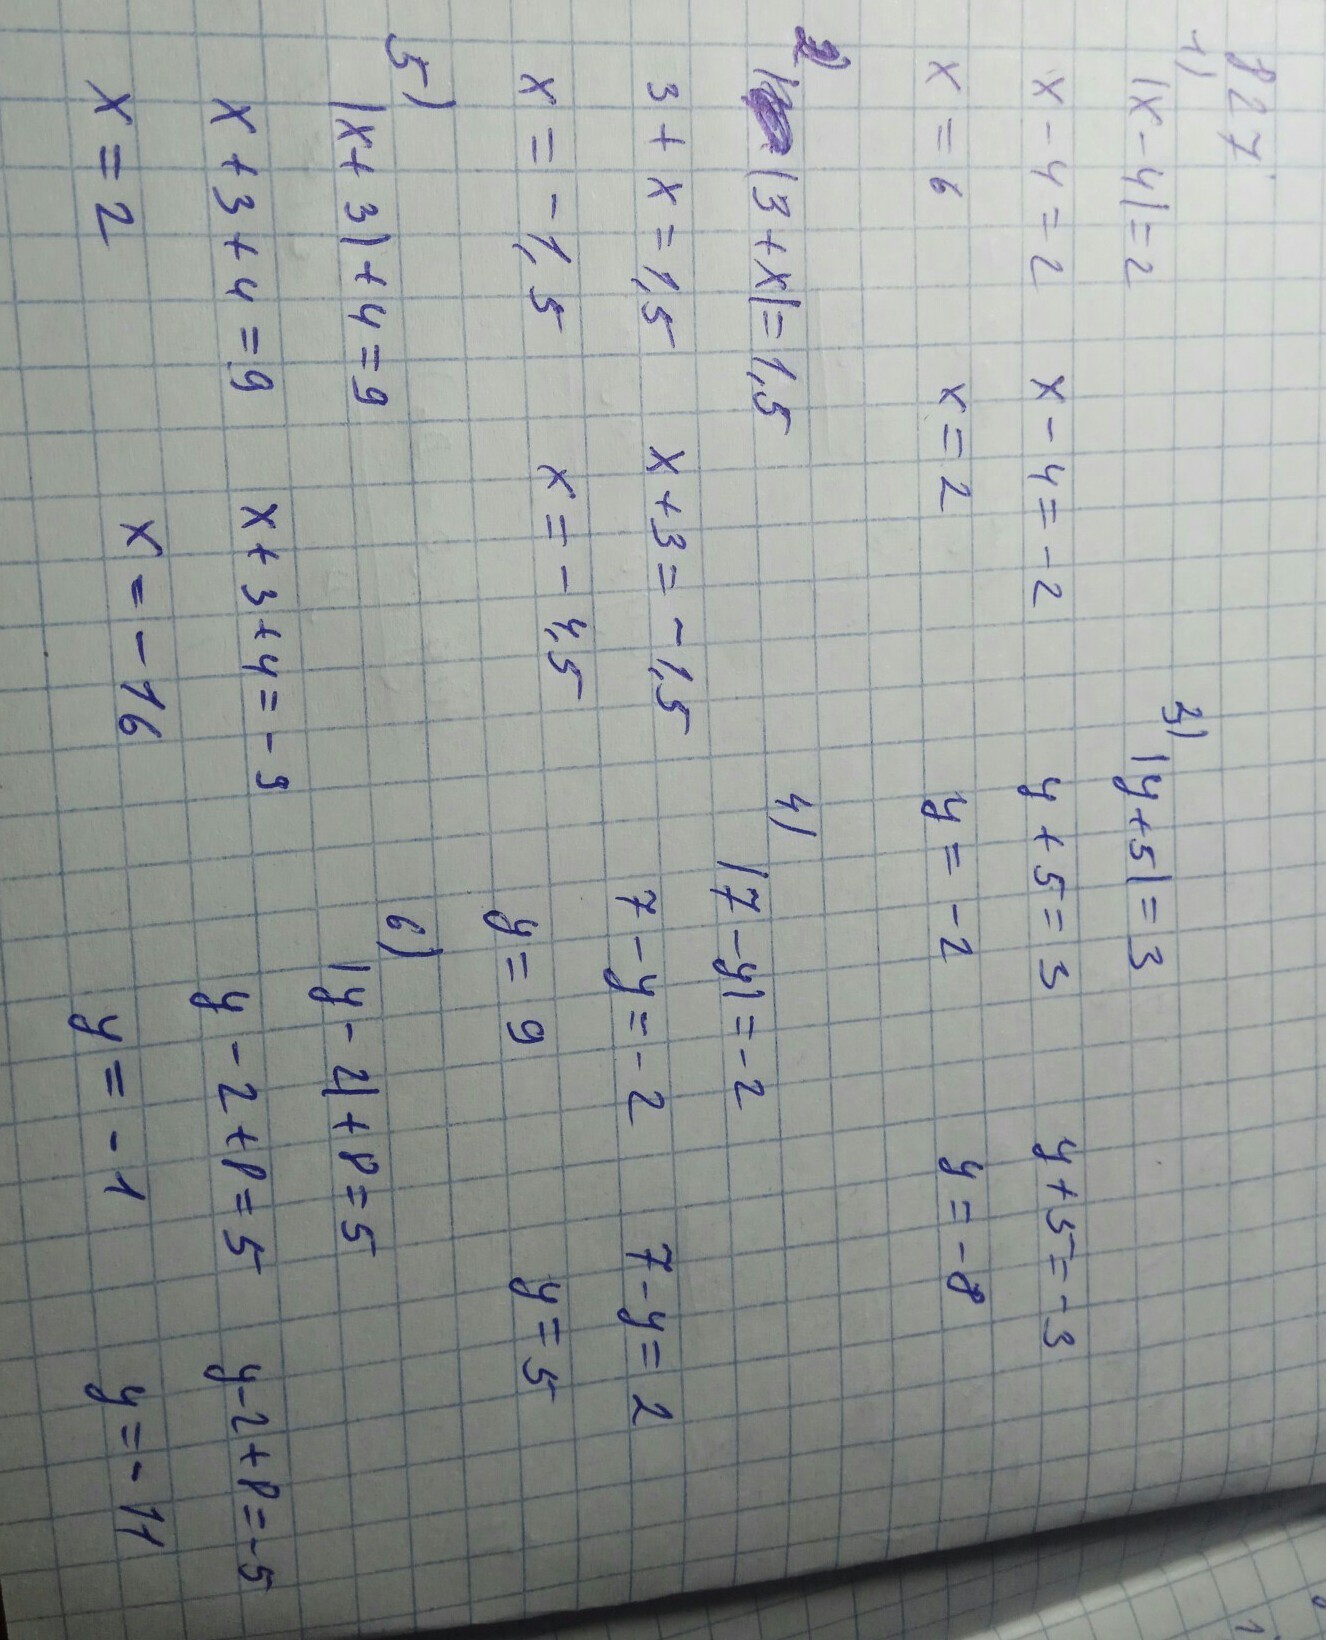 827
1)
|x-4|=2
x-4=2 x-4=-2
x=6 x=2
2)
|3+x|=1,5
3+x=1,5 x+3=-1,5
x=-1,5 x=-4,5
3)
|y+5|=3
y+5=3 y+5=-3
y=-2 y=-8
4)
|7-y|=-2
7-y=-2 7-y=2
y=9 y=5
5)
|x+3|+4=9
x+3+4=9 x+3+4=-9
x=2 x=-16
6)
|y-2|+8=5
y-2+8=5 y-2+8=-5
y=-1 y=-11